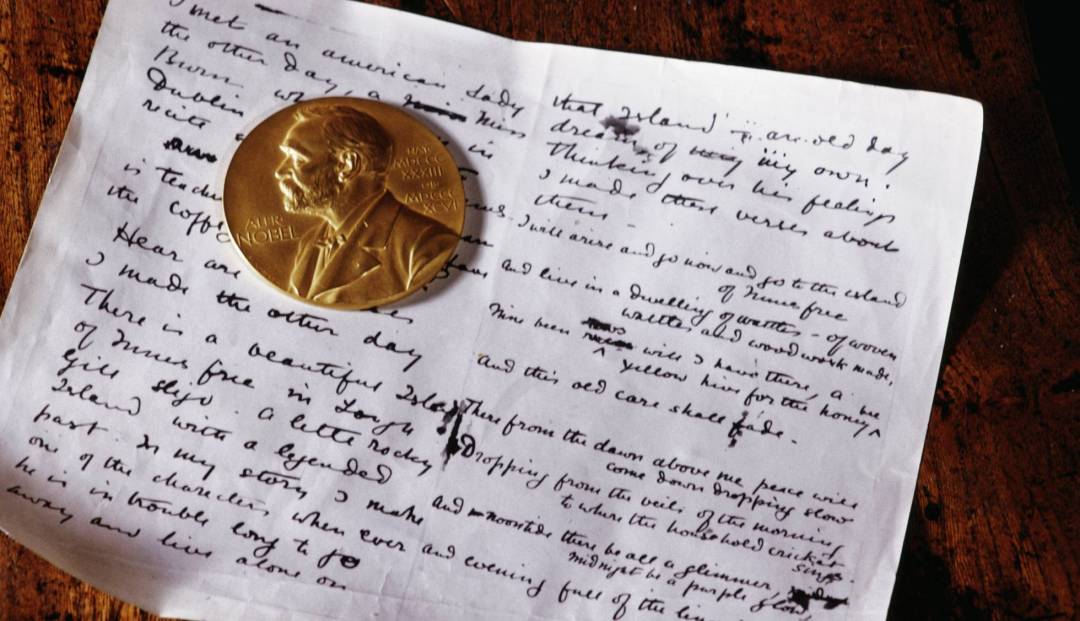 I met an american Lady
the other day, a Miss
Burn in
Dublin
recite
is
the
Hear are
I made the other day
There is a beautiful Island
of Innis free in Lough
Gill Sligo. A little rocky
Island with a legended
past. In my story I make
one of the characters when ever
he is in trouble long to go
away and live alone on
that Island - an old day
dream of my own.
Thinking over his feelings
I made these verses about
them -
I will arise and go now and go to the island
of Innis free
And live in a dwelling of wattles - of woven
wattles and wood work made,
Nine been rows will I have there, a
yellow hive for the honey
bee
And this old care shall fade.
There from the dawn above me peace will
come down dropping slow
Dropping from the veils of the morning
to where the household cricket
sings.
And noontide there be all a glimmer,
midnight be a purple glow
and evening full of the
ALFR.
NOBEL
NAT.
MDCCC
XXXIII
OB.
MDCCC
XCVI